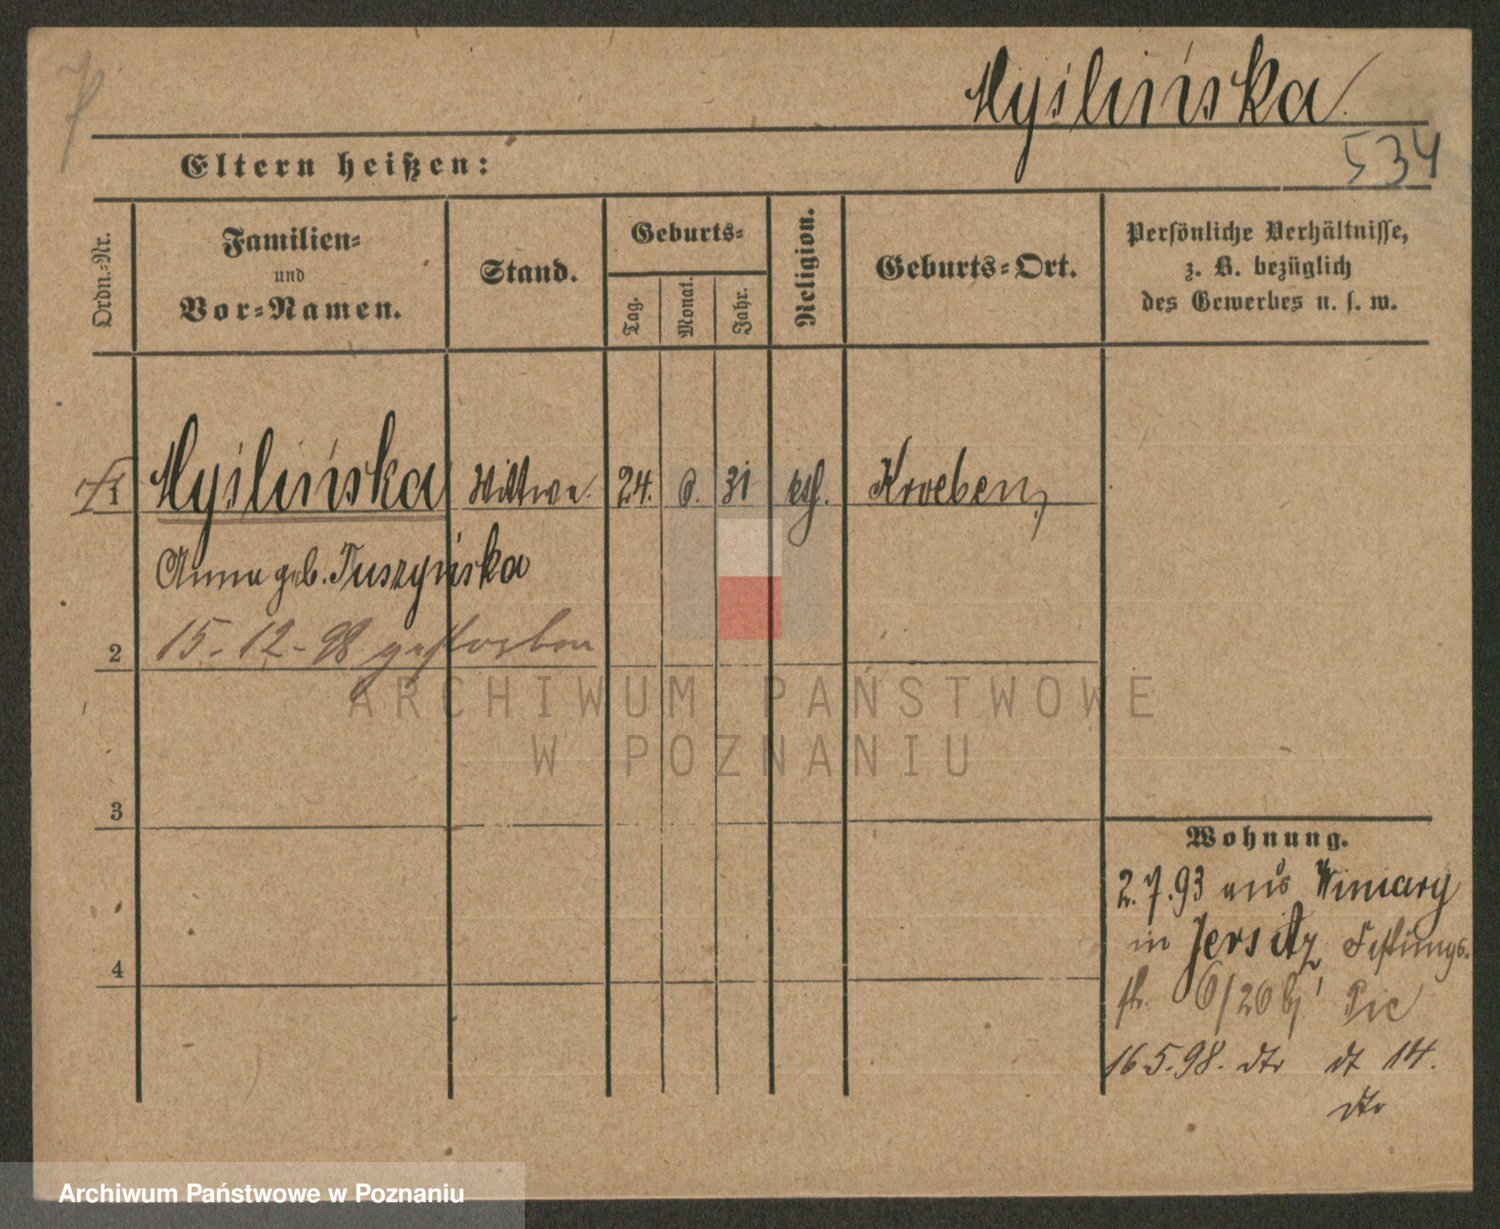 Myślińska
534
Eltern heißen:
Ordn.-Nr.
Familien-
und
Vor-Namen.
Stand.
Geburts-
Tag.
Monat.
Jahr.
Religion.
Geburts-Ort.
Persönliche Verhältnisse,
z. B. bezüglich
des Gewerbes u. s. w.
1 Myślińska Wittwe. 24. 6. 31 kth. Kroeben,
Anna geb. Tuszyńska
2 15-12-98 gestorben
3
4
Wohnung.
2.7.93 aus Winiary
in Jersitz Festungs-
str. 6/26 bj
16 5.98. dto dt 14.
dto
ARCHIWUM PAŃSTWOWE
W POZNANIU
Archiwum Państwowe w Poznaniu